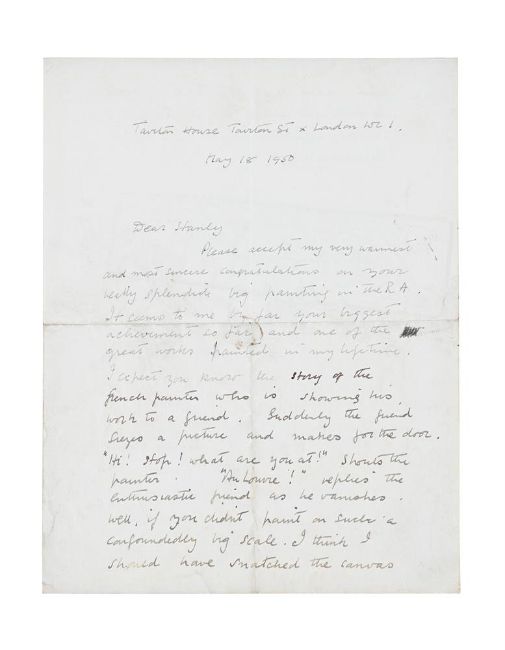 Taviton House Taviton St x London WC 1.
May 18 1950
Dear Stanley
Please accept my very warmest
and most sincere congratulations on your
really splendid big painting in the R A.
It seems to me by far your biggest
achievement so far and one of the
great works painted in my lifetime.
I expect you know the story of the
french painter who is showing his
work to a friend. Suddenly the friend
Siezes a picture and makes for the door.
"Hi! Stop! what are you at!" Shouts the
painter. "Au Louvre!" replies the
enthusiastic friend as he vanishes.
Well, if you didn't paint on such a
confoundedly big scale. I think I
should have snatched the canvas